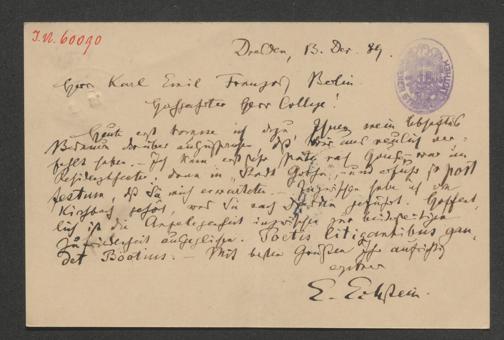 J.N. 60090
Dresden, 13. Dez. 89.
Herrn Karl Emil Franzos Berlin
Geehrter Herr College!
Heute erst komme ich dazu, Ihnen mein lebhaftes
Bedauern darüber auszusprechen, daß wir uns neulich ver-
fehlt haben. — Ich kam erst sehr spät nach Hause, war im
Residenztheater, dann in „Stadt Gotha", und erfuhr so post
festum, daß Sie mich erwarteten. Inzwischen habe ich
Kirchbach was Sie nach Dresden geführt. Hoffent-
lich ist die Angelegenheit inzwischen zur beiderseitigen
Zufriedenheit ausgeglichen. Poetis litigantibus gau-
det Böotius. — Mit besten Grüßen Ihr aufrichtig
ergebener
E. Eckstein.